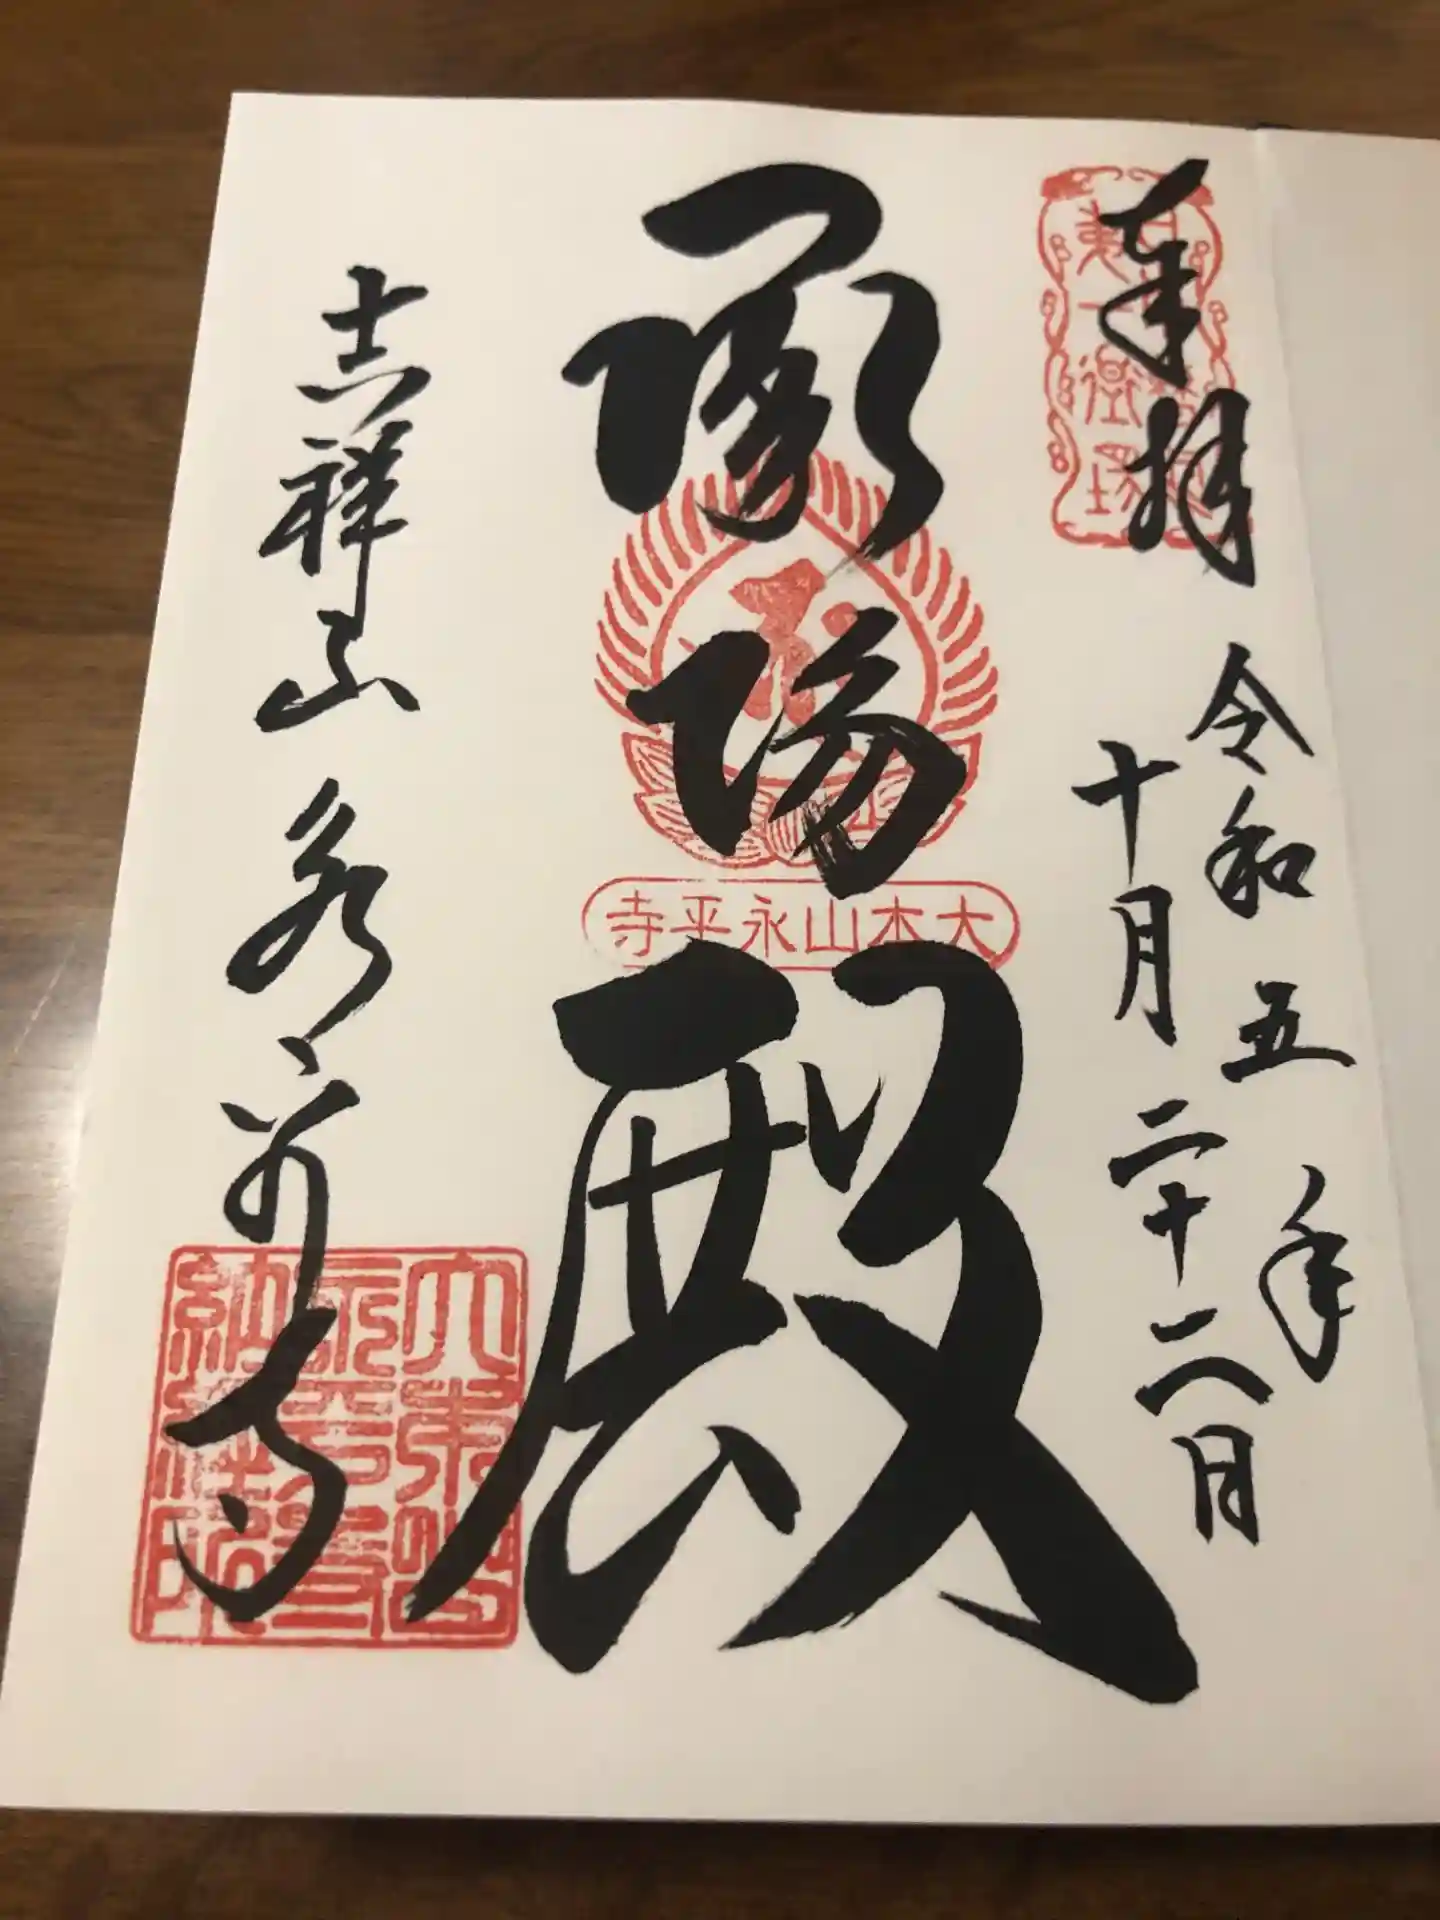 奉拝
令和五年
十月二十二日
承陽殿
大本山永平寺
吉祥山永平寺
大本山
永平寺
納經所